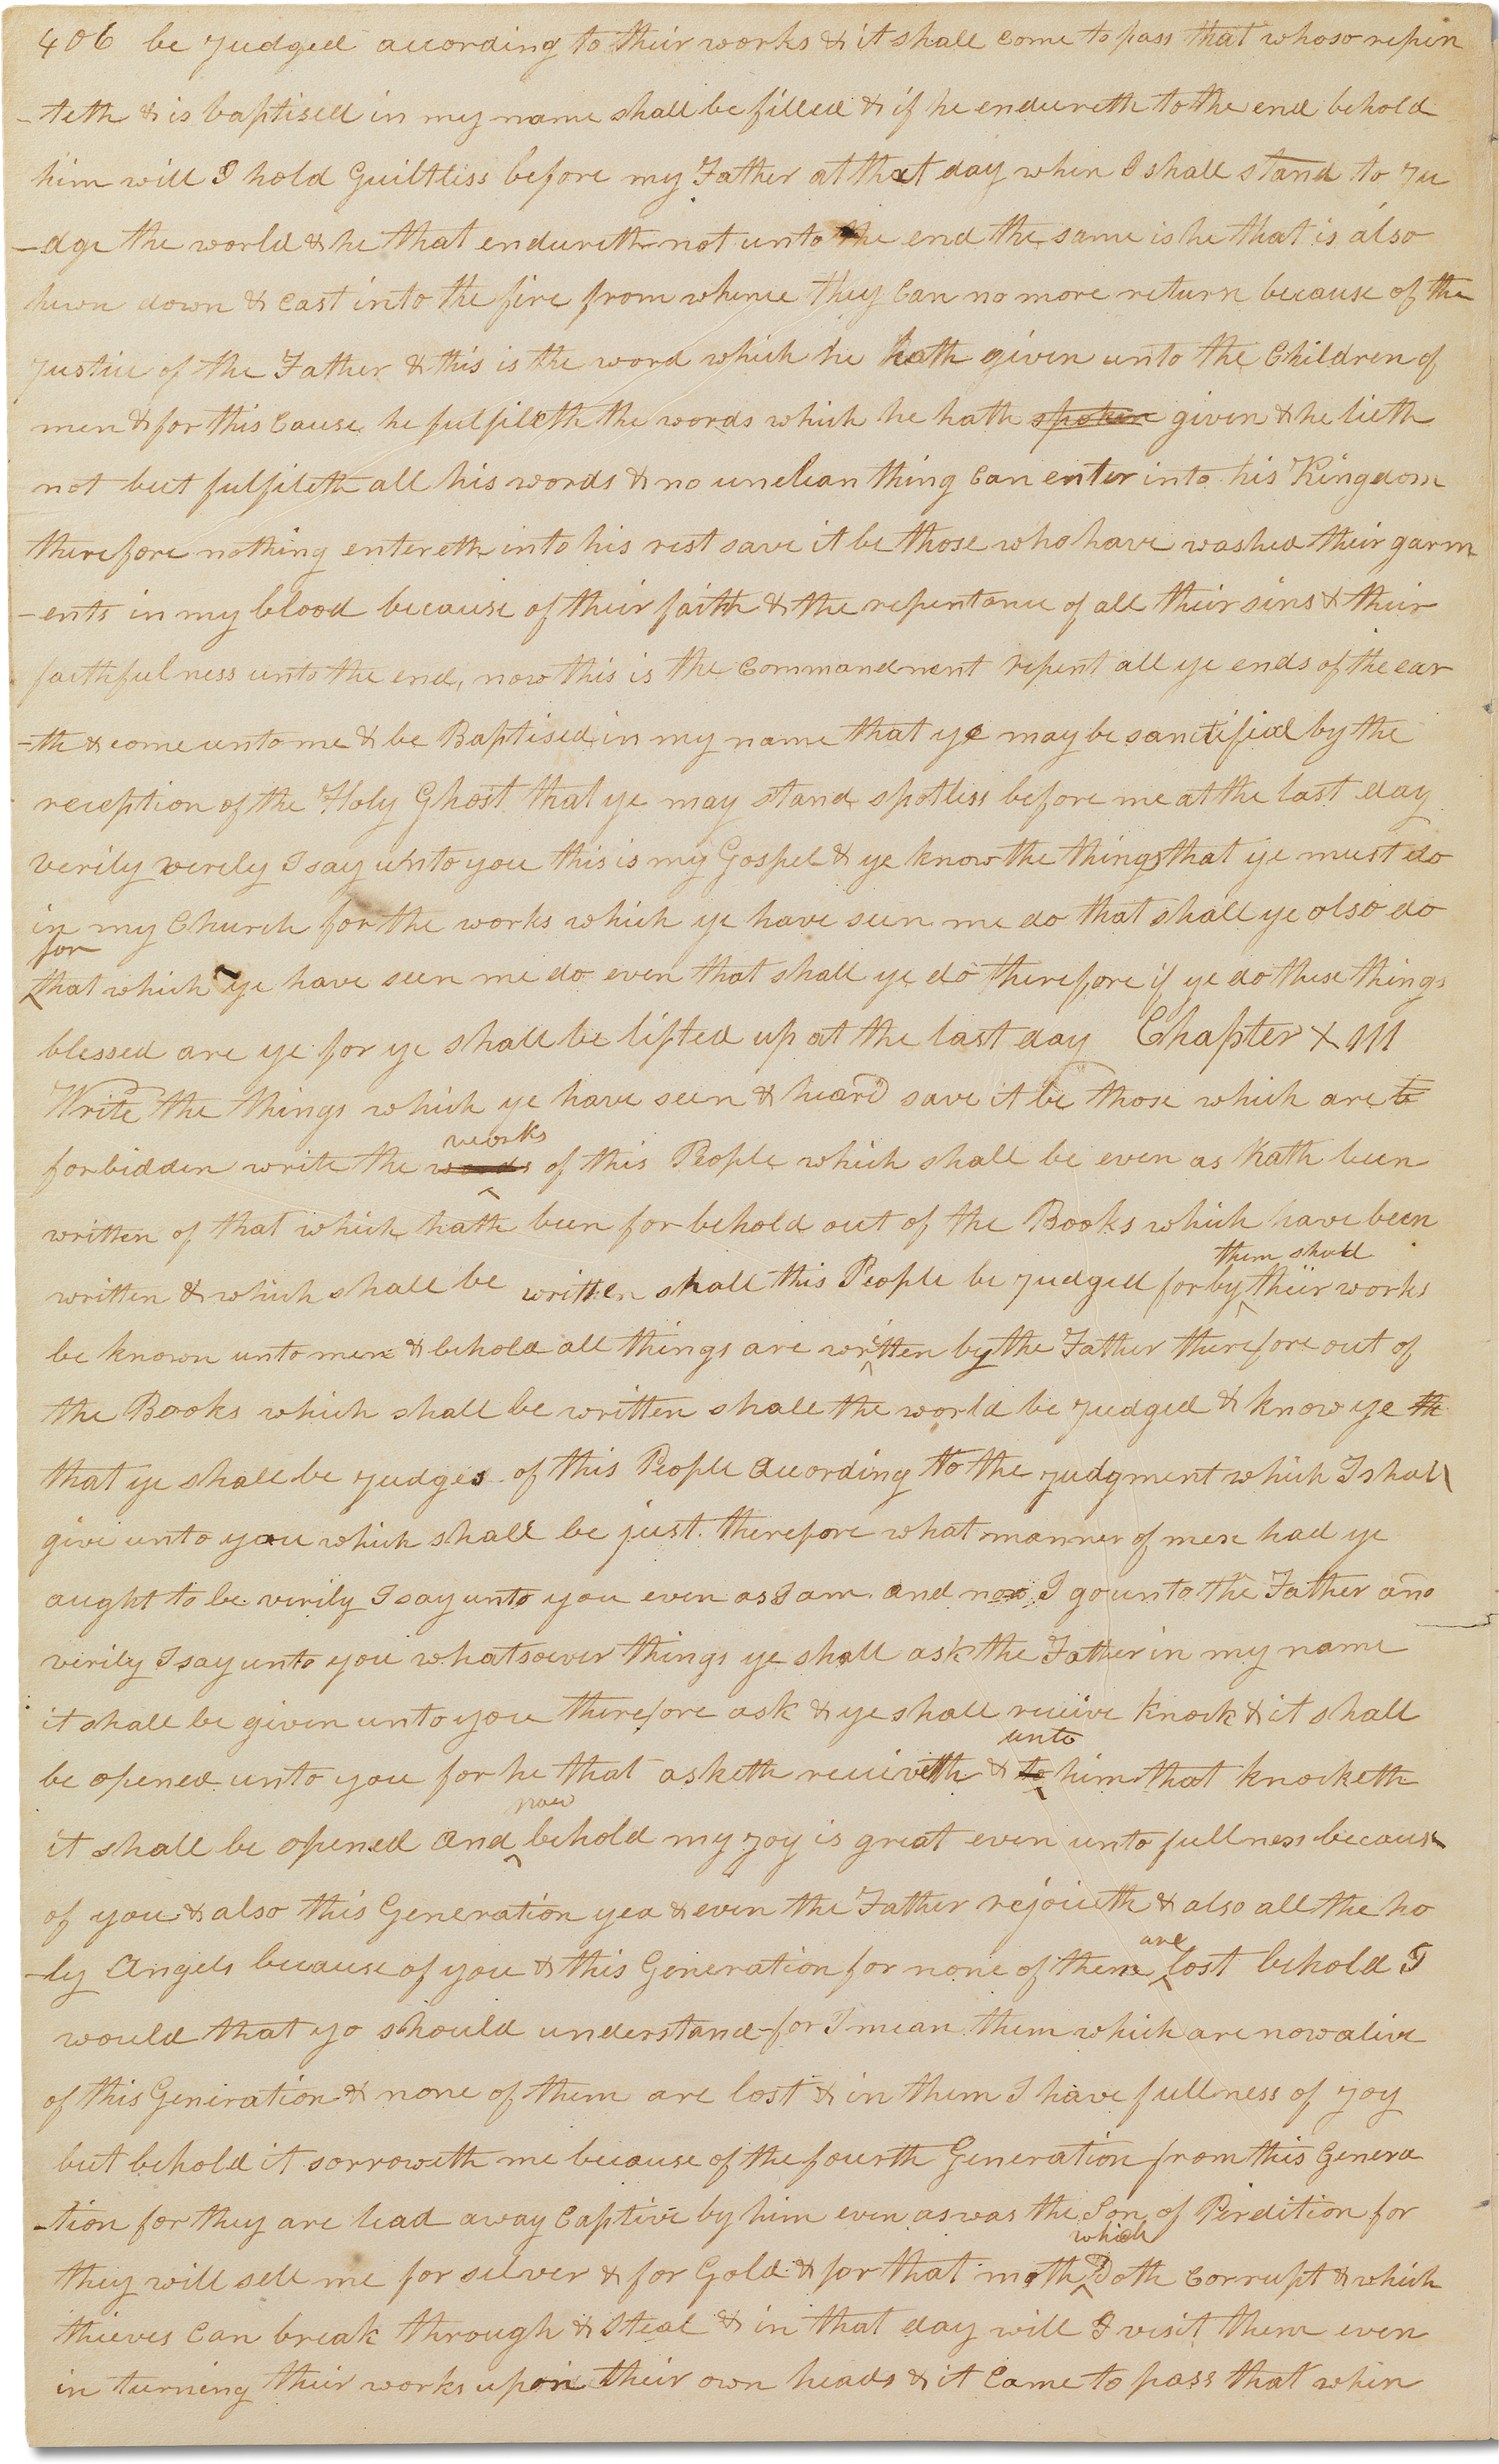 406 be judged according to their works & it shall come to pass that whoso repen
-teth & is baptised in my name shall be filled & if he endureth to the end behold
him will I hold Guiltless before my Father at that day when I shall stand to Ju
-dge the world & he that endureth not unto the end the same is he that is also
hewn down & cast into the fire from whence they can no more return because of the
Justice of the Father & this is the word which he hath given unto the Children of
men & for this cause he fulfileth the words which he hath spoken given & he lieth
not but fulfileth all his words & no unclean thing can enter into his Kingdom
therefore nothing entereth into his rest save it be those who have washed their garm
-ents in my blood because of their faith & the repentance of all their sins & their
faithfulness unto the end, now this is the commandment repent all ye ends of the ear
-th & come unto me & be Baptised in my name that ye may be sanctified by the
reception of the Holy Ghost that ye may stand spotless before me at the last day
verily verily I say unto you this is my Gospel & ye know the things that ye must do
in my Church for the works which ye have seen me do that shall ye also do
for
that which ye have seen me do even that shall ye do therefore if ye do these things
blessed are ye for ye shall be lifted up at the last day Chapter XIII
Write the things which ye have seen & heard save it be those which are to
works
forbidden write the words of this People which shall be even as hath been
written of that which hath been for behold out of the Books which have been
them shall
written & which shall be written shall this People be judged for by their works
be known unto men & behold all things are written by the Father therefore out of
the Books which shall be written shall the world be judged & know ye th
that ye shall be judges of this People according to the judgment which I shall
give unto you which shall be just therefore what manner of men had ye
aught to be verily I say unto you even as I am and now I go unto the Father and
verily I say unto you whatsoever things ye shall ask the Father in my name
it shall be given unto you therefore ask & ye shall receive knock & it shall
unto
be opened unto you for he that asketh receiveth & to him that knocketh
now
it shall be opened and behold my joy is great even unto fullness because
of you & also this Generation yea & even the Father rejoiceth & also all the ho
are
-ly Angels because of you & this Generation for none of them lost behold I
would that yo should understand for I mean them which are now alive
of this Generation & none of them are lost & in them I have fullness of joy
but behold it sorroweth me because of the fourth Generation from this Genera
-tion for they are lead away captive by him even as was the Son of Perdition for
which
they will sell me for silver & for Gold & for that moth Doth corrupt & which
thieves can break through & steal & in that day will I visit them even
in turning their works upon their own heads & it came to pass that when